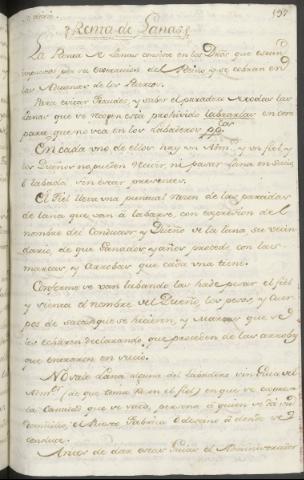 197
Renta de Lanas
La Renta de Lanas consiste en los Dros que estan
impuestos por su extraccion del Reino, y se cobran en
las Aduanas de los Puertos.
Para evitar fraudes, y saber el paradero de todas las
Lanas que se recojen esta prohivido labarlas en otra
parte que no sea en los Labaderos
En cada uno de ellos hay un Admor y un fiel, y
los Dueños no pueden pesar, ni sacar Lana en sucio,
ó labada sin estar presentes.
El Fiel lleva una puntual razon de las partidas
de lana que van á labarse, con expresion del
nombre del Conductor, y Dueño de la lana, su vecin
dario, de que Ganados, y años procede, con las
marcas, y Arrobas que cada una tiene.
Conforme se van labando las hace pesar el fiel
y sienta el nombre del Dueño, los pesos, y cuer
pos de sacas que se hicieren, y Marcas que se
les echaren declarando, que proceden de las arrobas
que entraron en sucio.
No sale Lana alguna del labadero sin Guia del
Admor (de que toma Razn el fiel) en que se expresa
la Cantidad que se saca, persona á quien se dá, su
domicilio, el Puerto, Fabrica ó destino á donde se
conduce.
Antes de dar estas Guias el Administrador